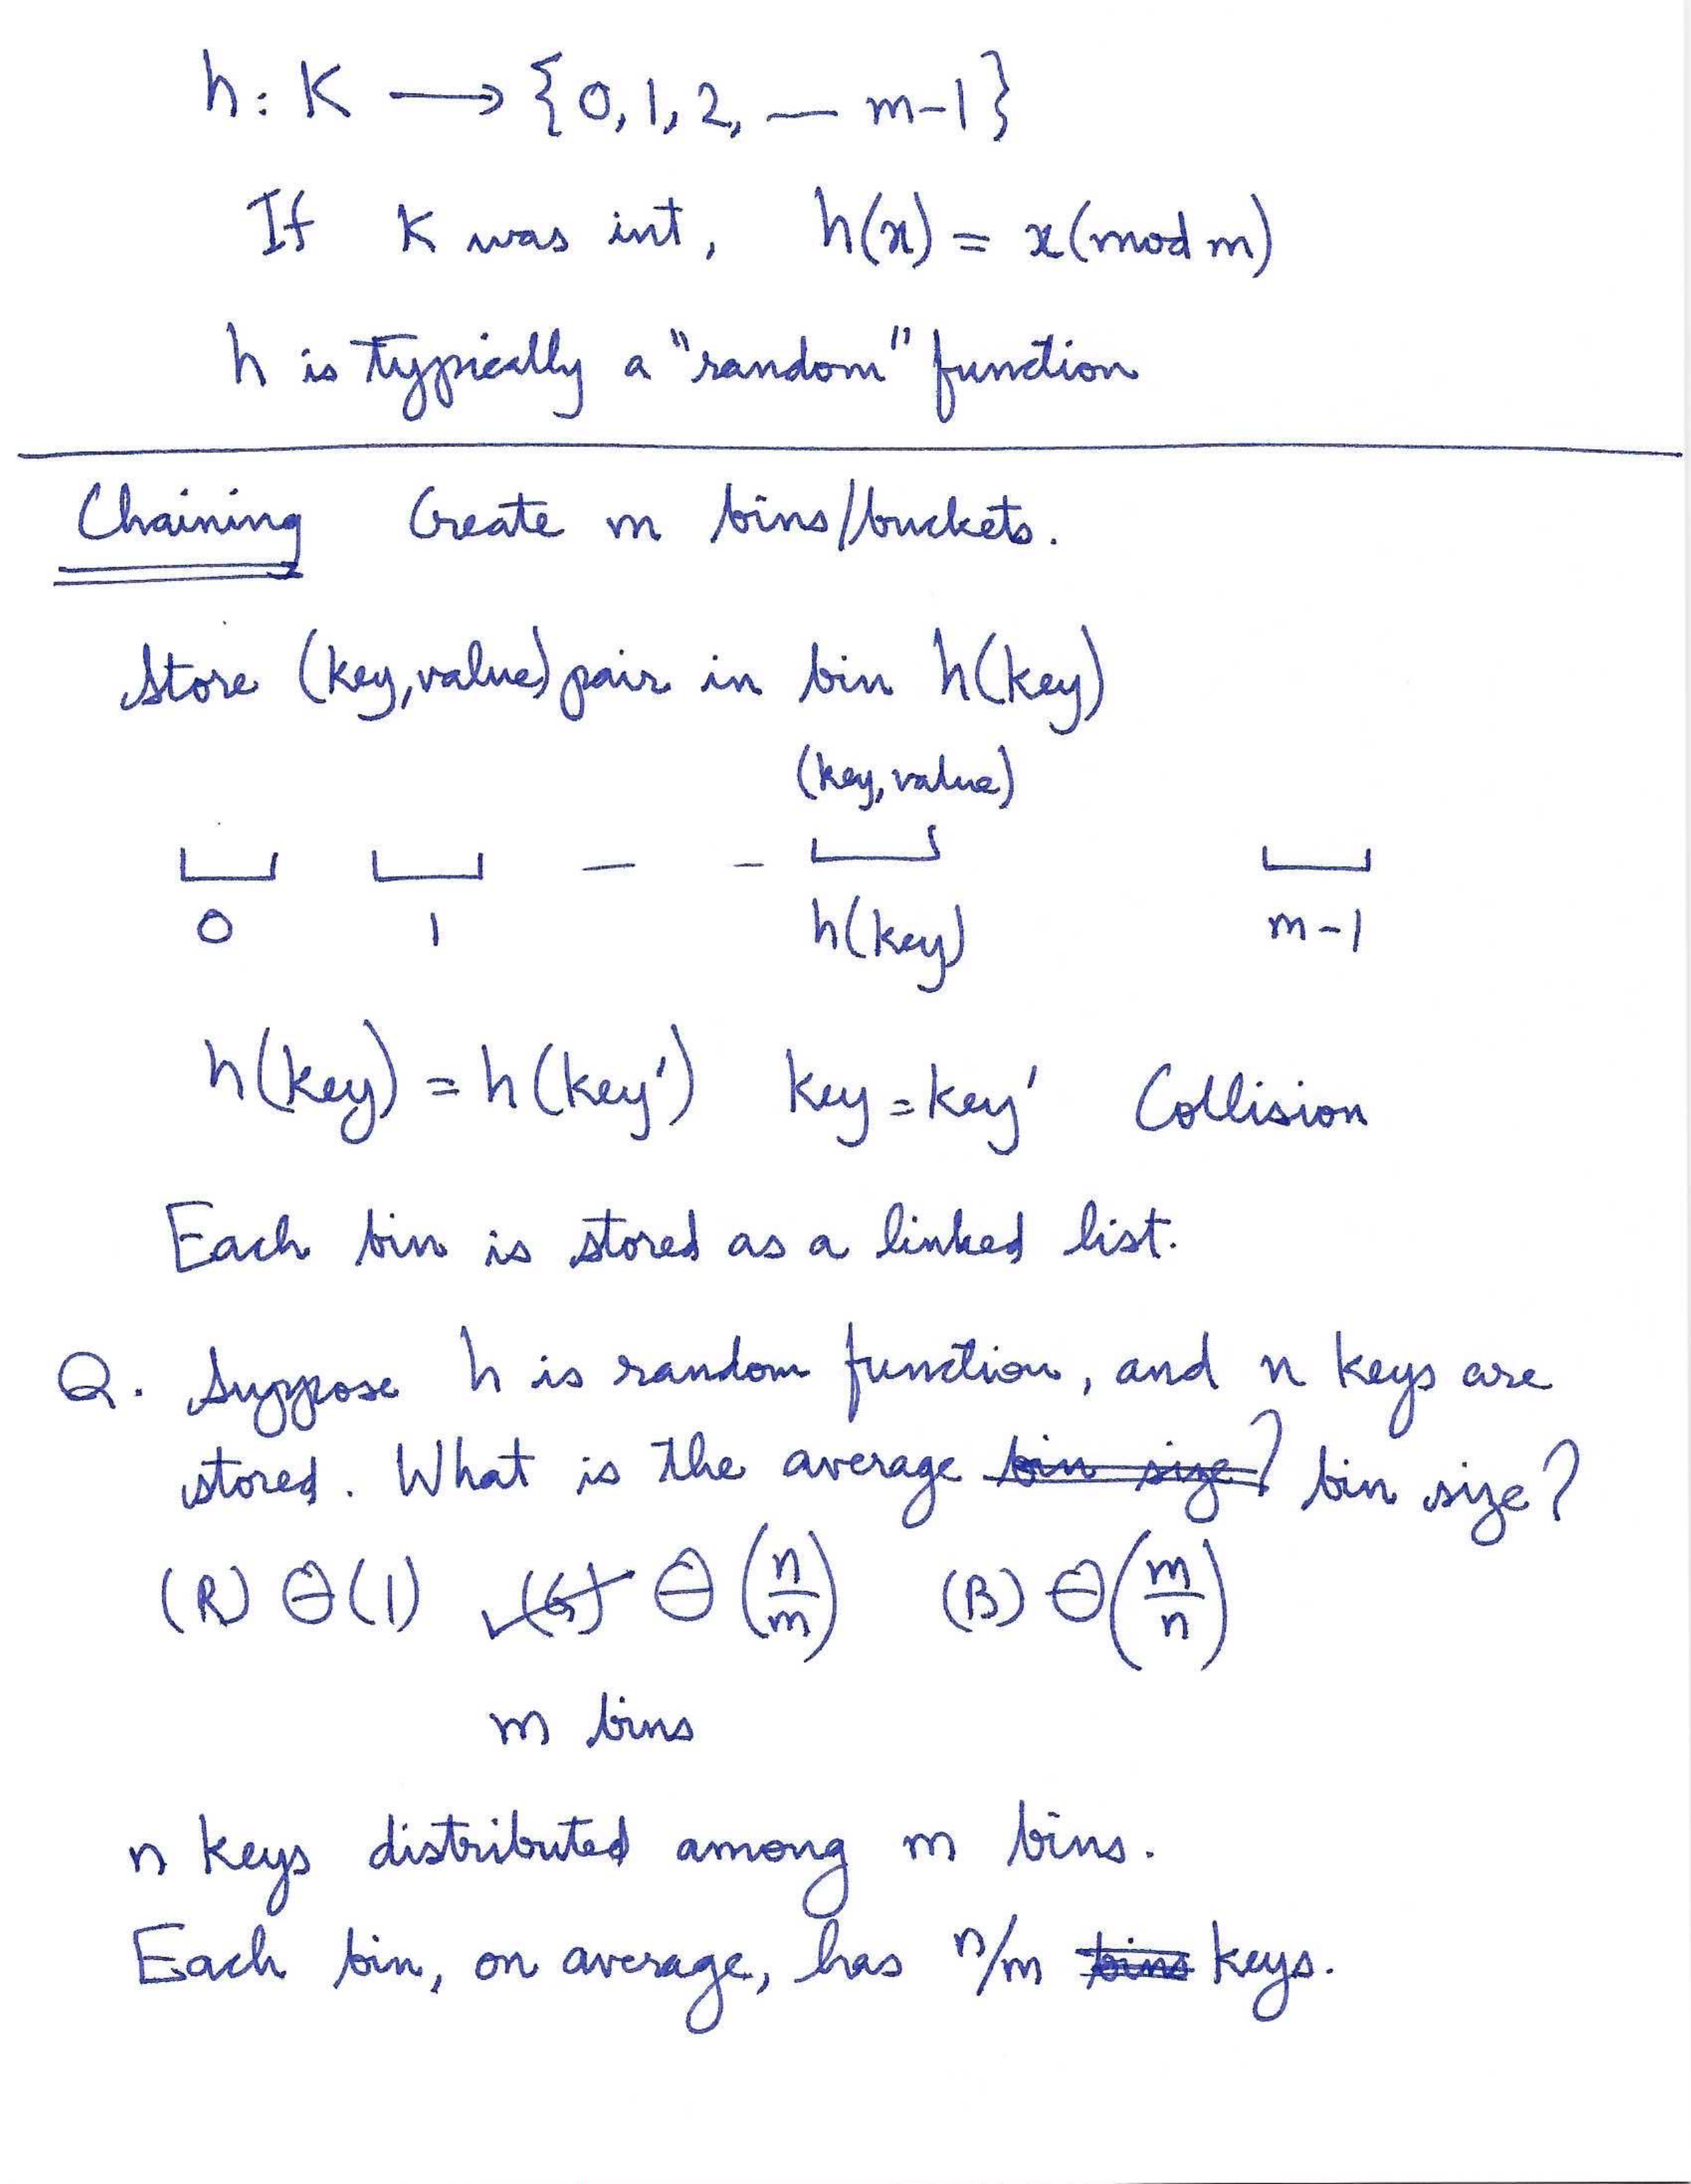 h: K ⟶ {0, 1, 2, — m-1}
If K was int, h(x) = x (mod m)
h is typically a "random" function
Chaining Create m bins/buckets.
Store (key, value) pair in bin h(key)
(key, value)
0 1 – - h(key) m-1
h(key) = h(key') key = key' Collision
Each bin is stored as a linked list.
Q. Suppose h is random function, and n keys are
stored. What is the average bin size? bin size?
(R) Θ(1) ✓(G) Θ(n/m) (B) Θ(m/n)
m bins
n keys distributed among m bins.
Each bin, on average, has n/m bins keys.